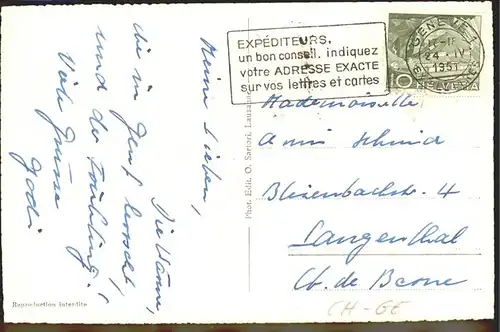 Meine Lieben,
Die Wärme,
die in Genf herrscht,
und der Frühling!
Viele Grüsse
Reproduction interdite
Phot. Edit. O. Sartori, Lausanne
EXPÉDITEURS,
un bon conseil, indiquez
votre ADRESSE EXACTE
sur vos lettres et cartes
GENÈVE 1
1951
10
HELVETIA
Mademoiselle
Schmid
4
Langenthal
Ct. de Berne
CH-GE